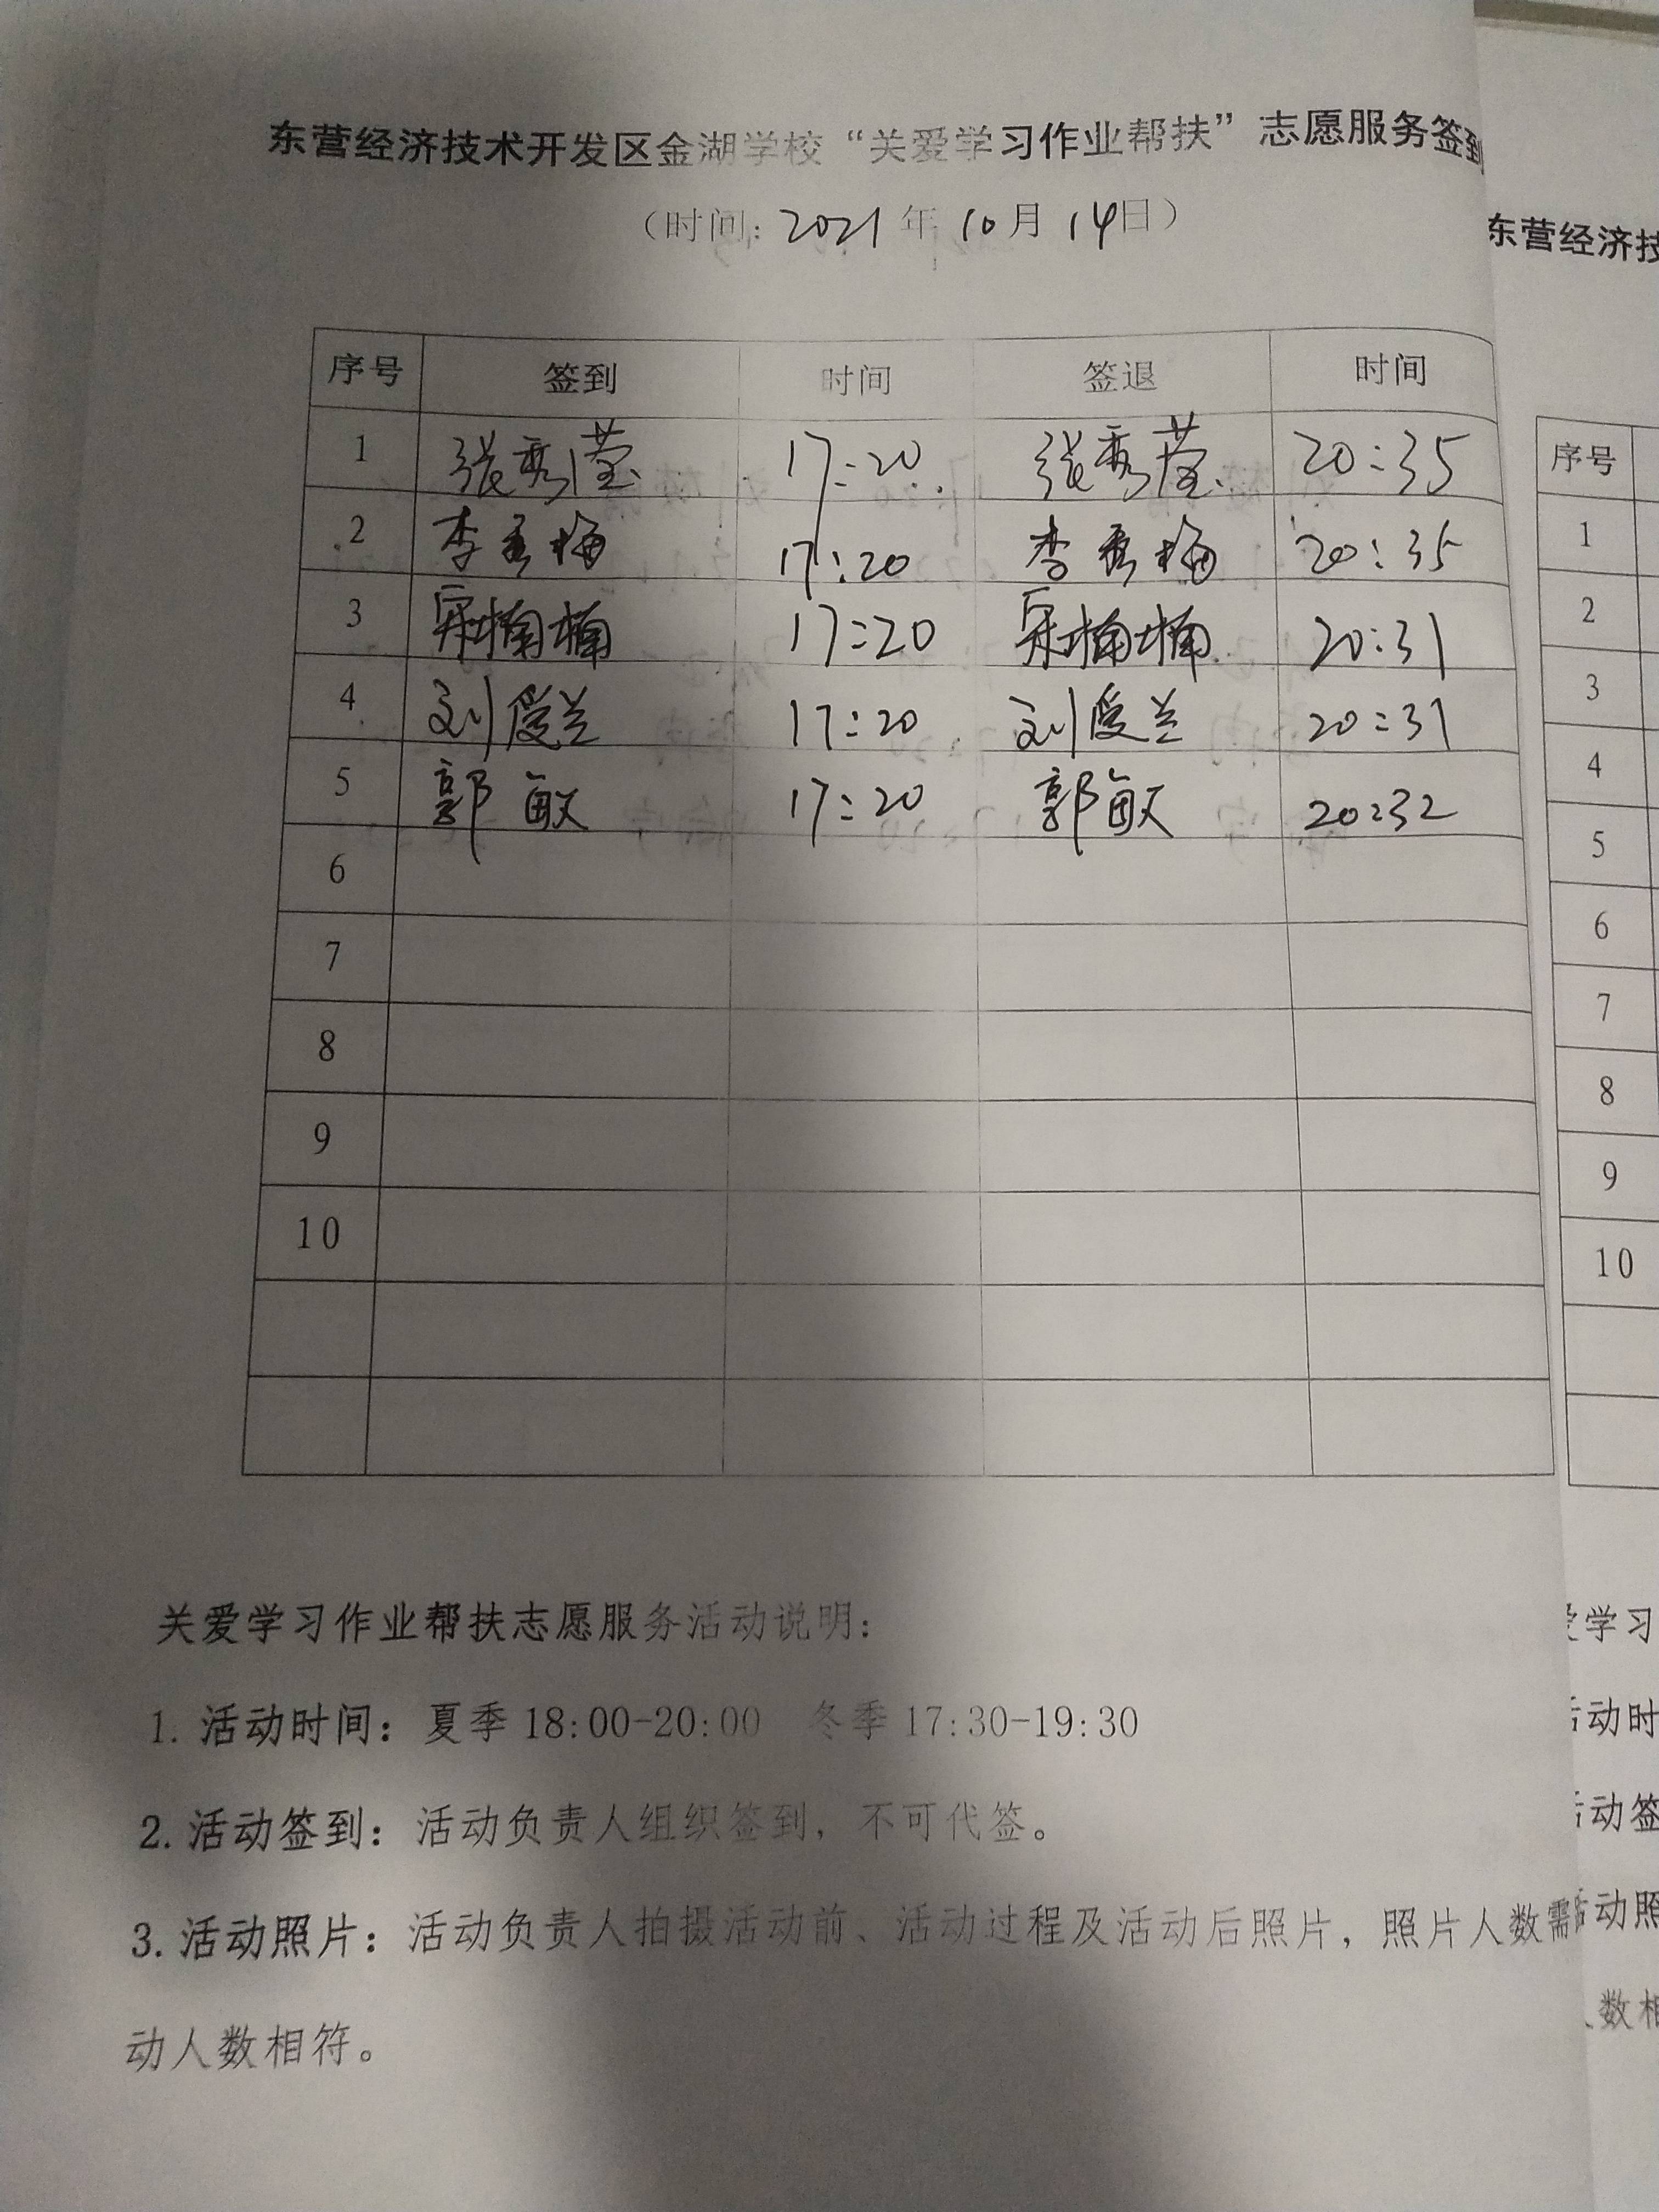 东营经济技术开发区金湖学校“关爱学习作业帮扶”志愿服务签到
（时间：2021年10月14日）
序号 签到 时间 签退 时间
1 张秀滢 17:20 张秀滢 20:35
2 李秀梅 17:20 李秀梅 20:35
3 宋楠楠 17:20 宋楠楠 20:31
4 刘爱兰 17:20 刘爱兰 20:31
5 郭敏 17:20 郭敏 20:32
6
7
8
9
10
关爱学习作业帮扶志愿服务活动说明：
1. 活动时间：夏季 18:00-20:00 冬季 17:30-19:30
2. 活动签到：活动负责人组织签到，不可代签。
3. 活动照片：活动负责人拍摄活动前、活动过程及活动后照片，照片人数需
动人数相符。
东营经济技
序号
1
2
3
4
5
6
7
8
9
10
爱学习
活动时
活动签
活动照
人数相